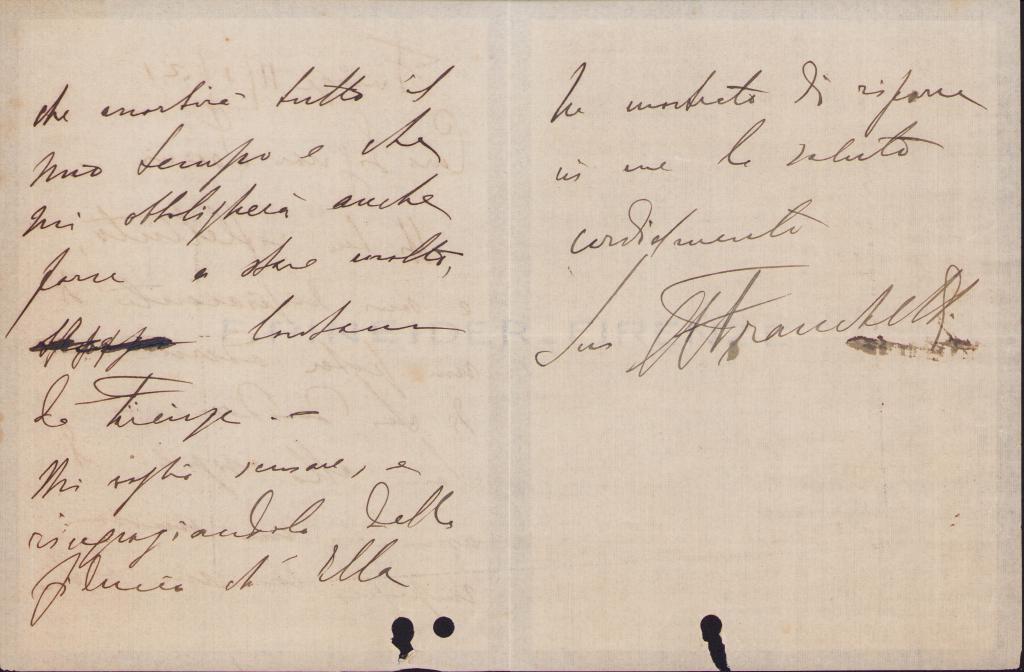 che assorbirà tutto il
mio tempo e che
mi obbligherà anche
forse a stare molto,
lontano
da Firenze. —
Mi voglia scusare, e
ringraziandola della
fiducia ch' Ella
ha mostrato di riporre
in me la saluto
cordialmente
Suo Franchetti